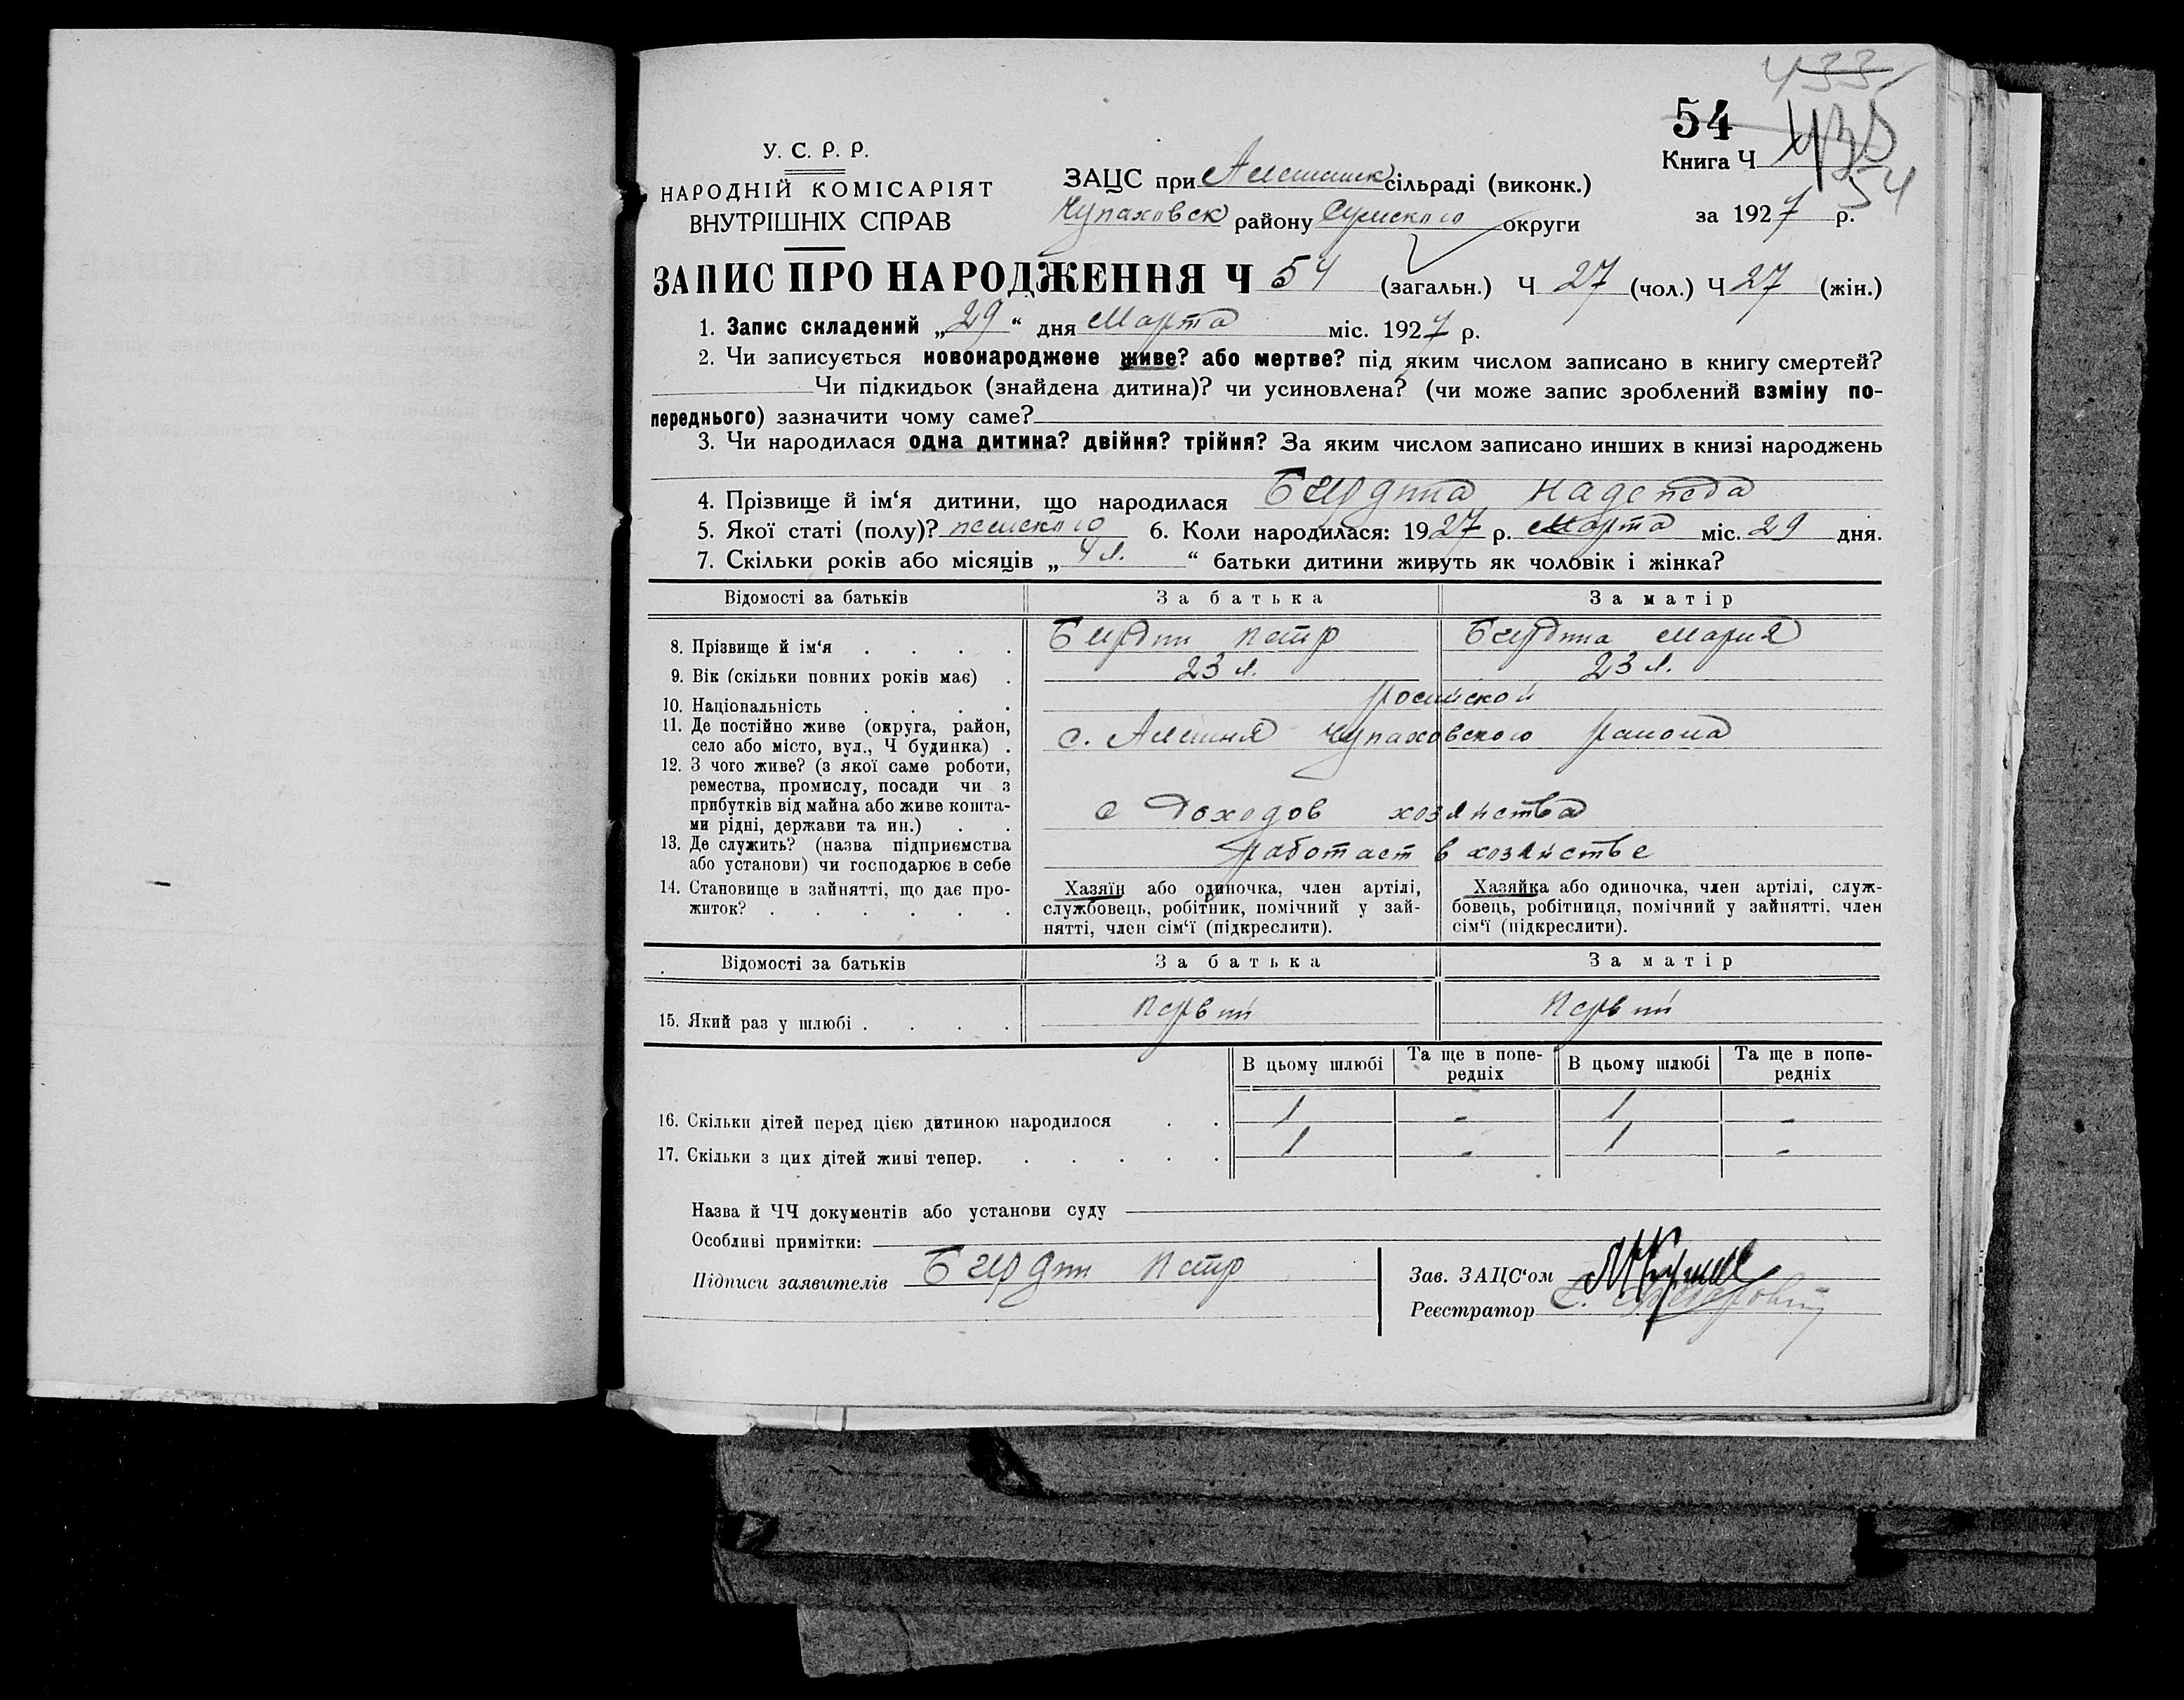 433
54
435
У. С. Р. Р.
НАРОДНІЙ КОМІСАРІЯТ
ВНУТРІШНІХ СПРАВ
ЗАЦС при Алешанск сільраді (виконк.)
Чупаховск району Сумского округи
Книга Ч 54
за 1927 р.
ЗАПИС ПРО НАРОДЖЕННЯ Ч 54 (загальн.) Ч 27 (чол.) Ч 27 (жін.)
1. Запис складений „29“ дня Марта міс. 1927 р.
2. Чи записується новонароджене живе? або мертве? під яким числом записано в книгу смертей?
Чи підкидьок (знайдена дитина)? чи усиновлена? (чи може запис зроблений взміну по-
переднього) зазначити чому саме?
3. Чи народилася одна дитина? двійня? трійня? За яким числом записано инших в книзі народжень
4. Прізвище й ім‘я дитини, що народилася Бирдина Надежда
5. Якої статі (полу)? женского 6. Коли народилася: 1927 р. Марта міс. 29 дня.
7. Скільки років або місяців „4 л.“ батьки дитини живуть як чоловік і жінка?
Відомості за батьків За батька За матір
8. Прізвище й ім‘я . . . . Бирдин Петр Бирдина Мария
9. Вік (скільки повних років має) . 23 л. 23 л.
10. Національність . . . . росийской
11. Де постійно живе (округа, район,
село або місто, вул., Ч будинка) . с. Алешня Чупаховского района
12. З чого живе? (з якої саме роботи,
ремества, промислу, посади чи з
прибутків від майна або живе кошта-
ми рідні, держави та ин.) . . с доходов хозяйства
13. Де служить? (назва підприємства
або установи) чи господарює в себе работает в хозяйстве
14. Становище в зайнятті, що дає про-
житок? . . . . . .
Хазяїн або одиночка, член артілі,
службовець, робітник, помічний у зай-
нятті, член сім‘ї (підкреслити).
Хазяйка або одиночка, член артілі, служ-
бовець, робітниця, помічний у зайнятті, член
сім‘ї (підкреслити).
Відомості за батьків За батька За матір
15. Який раз у шлюбі . . . . первый первый
В цьому шлюбі Та ще в попе-
редніх В цьому шлюбі Та ще в попе-
редніх
16. Скільки дітей перед цією дитиною народилося . . 1 - 1 -
17. Скільки з цих дітей живі тепер. . . . . . 1 - 1 -
Назва й ЧЧ документів або установи суду
Особливі примітки:
Підписи заявителів Бирдин Петр
Зав. ЗАЦС‘ом
Реєстратор